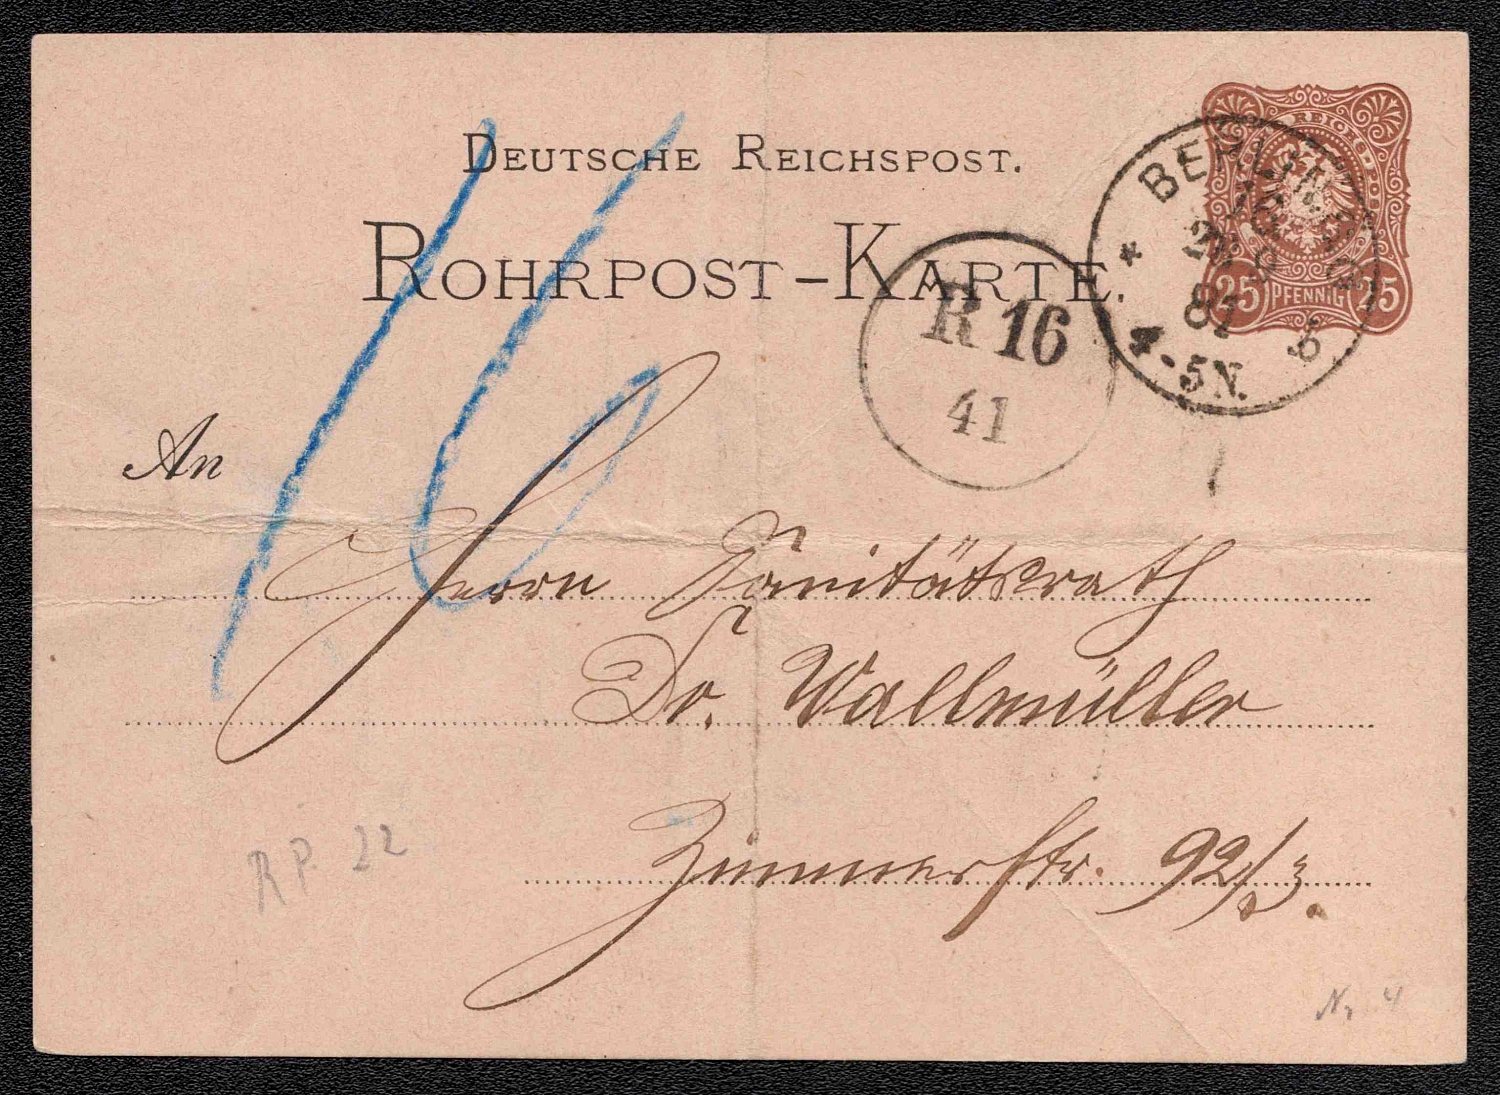 DEUTSCHE REICHSPOST.
ROHRPOST-KARTE.
25 PFENNIG 25
BERLIN
81
4-5N.
R 16
41
16
An
Herrn Sanitätsrath
Dr. Wallmüller
Zimmerstr. 92/3.
RP. 22
Nr 4